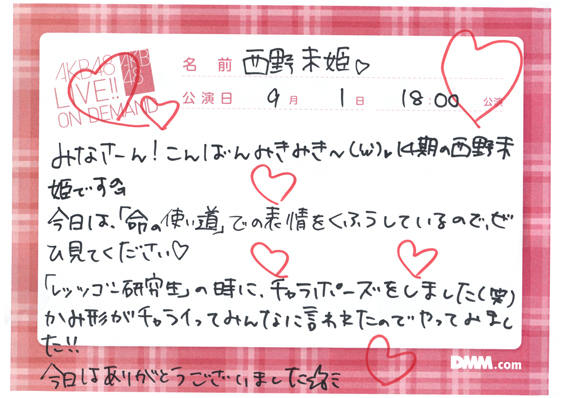 AKB48
LIVE!!
ON DEMAND
AKB
48
名前 西野未姫♡
公演日 9月 1日 18:00 公演
みなさーん！こんばんみきみき〜(ω)。14期の西野未
姫です
今日は、「命の使い道」での表情をくふうしているので、ぜ
ひ見てください♡
「レッツゴー研究生」の時に、チャラポーズをしました(笑)
かみ形がチャライってみんなに言われたのでやってみまし
た!!
今日はありがとうございました
DMM.com